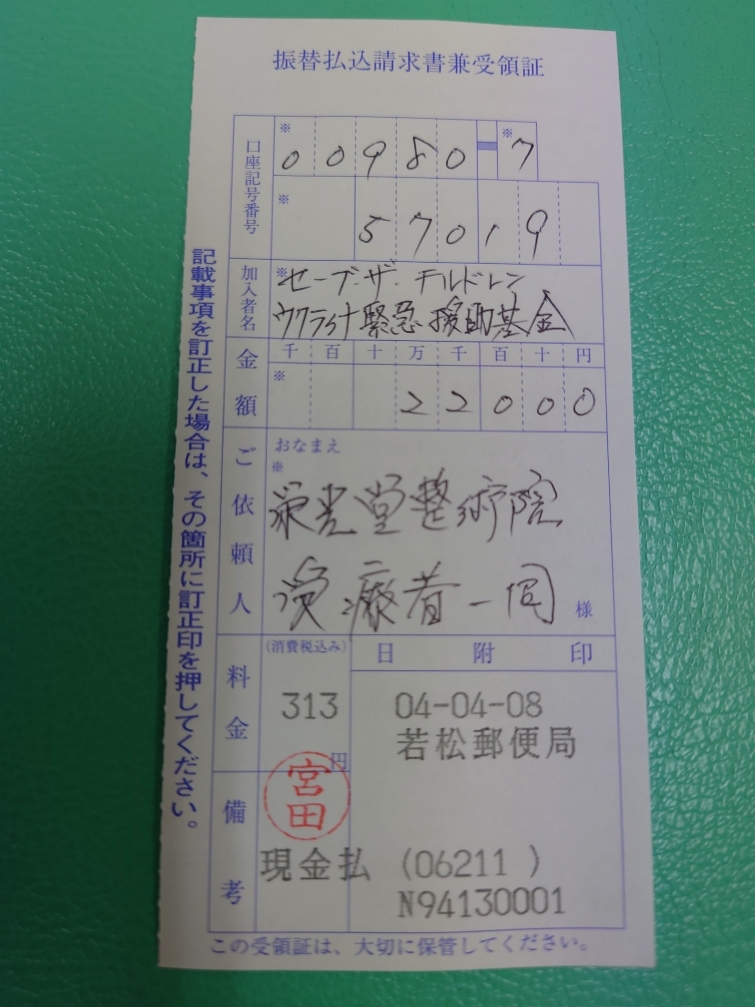 振替払込請求書兼受領証
口座記号番号
※ ※
00980-7
※
57019
加入者名
※セーブ・ザ・チルドレン
ウクライナ緊急援助基金
金額
千百十万千百十円
※
22000
ご依頼人
おなまえ
※
栄光堂整術院
受療者一同 様
料金
(消費税込み)
313
円
日附印
04-04-08
若松郵便局
備考
宮田
現金払 (06211 )
N94130001
この受領証は、大切に保管してください。
記載事項を訂正した場合は、その箇所に訂正印を押してください。